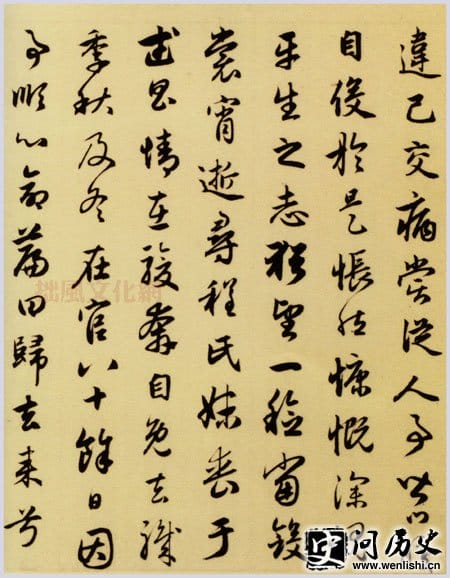 違己交病嘗從人事皆口
自役於是悵然慷慨深
平生之志猶望一稔當斂
裳宵逝尋程氏妹喪于
武昌情在駿奔自免去職
季秋及冬在官八十餘日因
事順心命篇曰歸去來兮
拙風文化網
问历史
www.wenlishi.cn